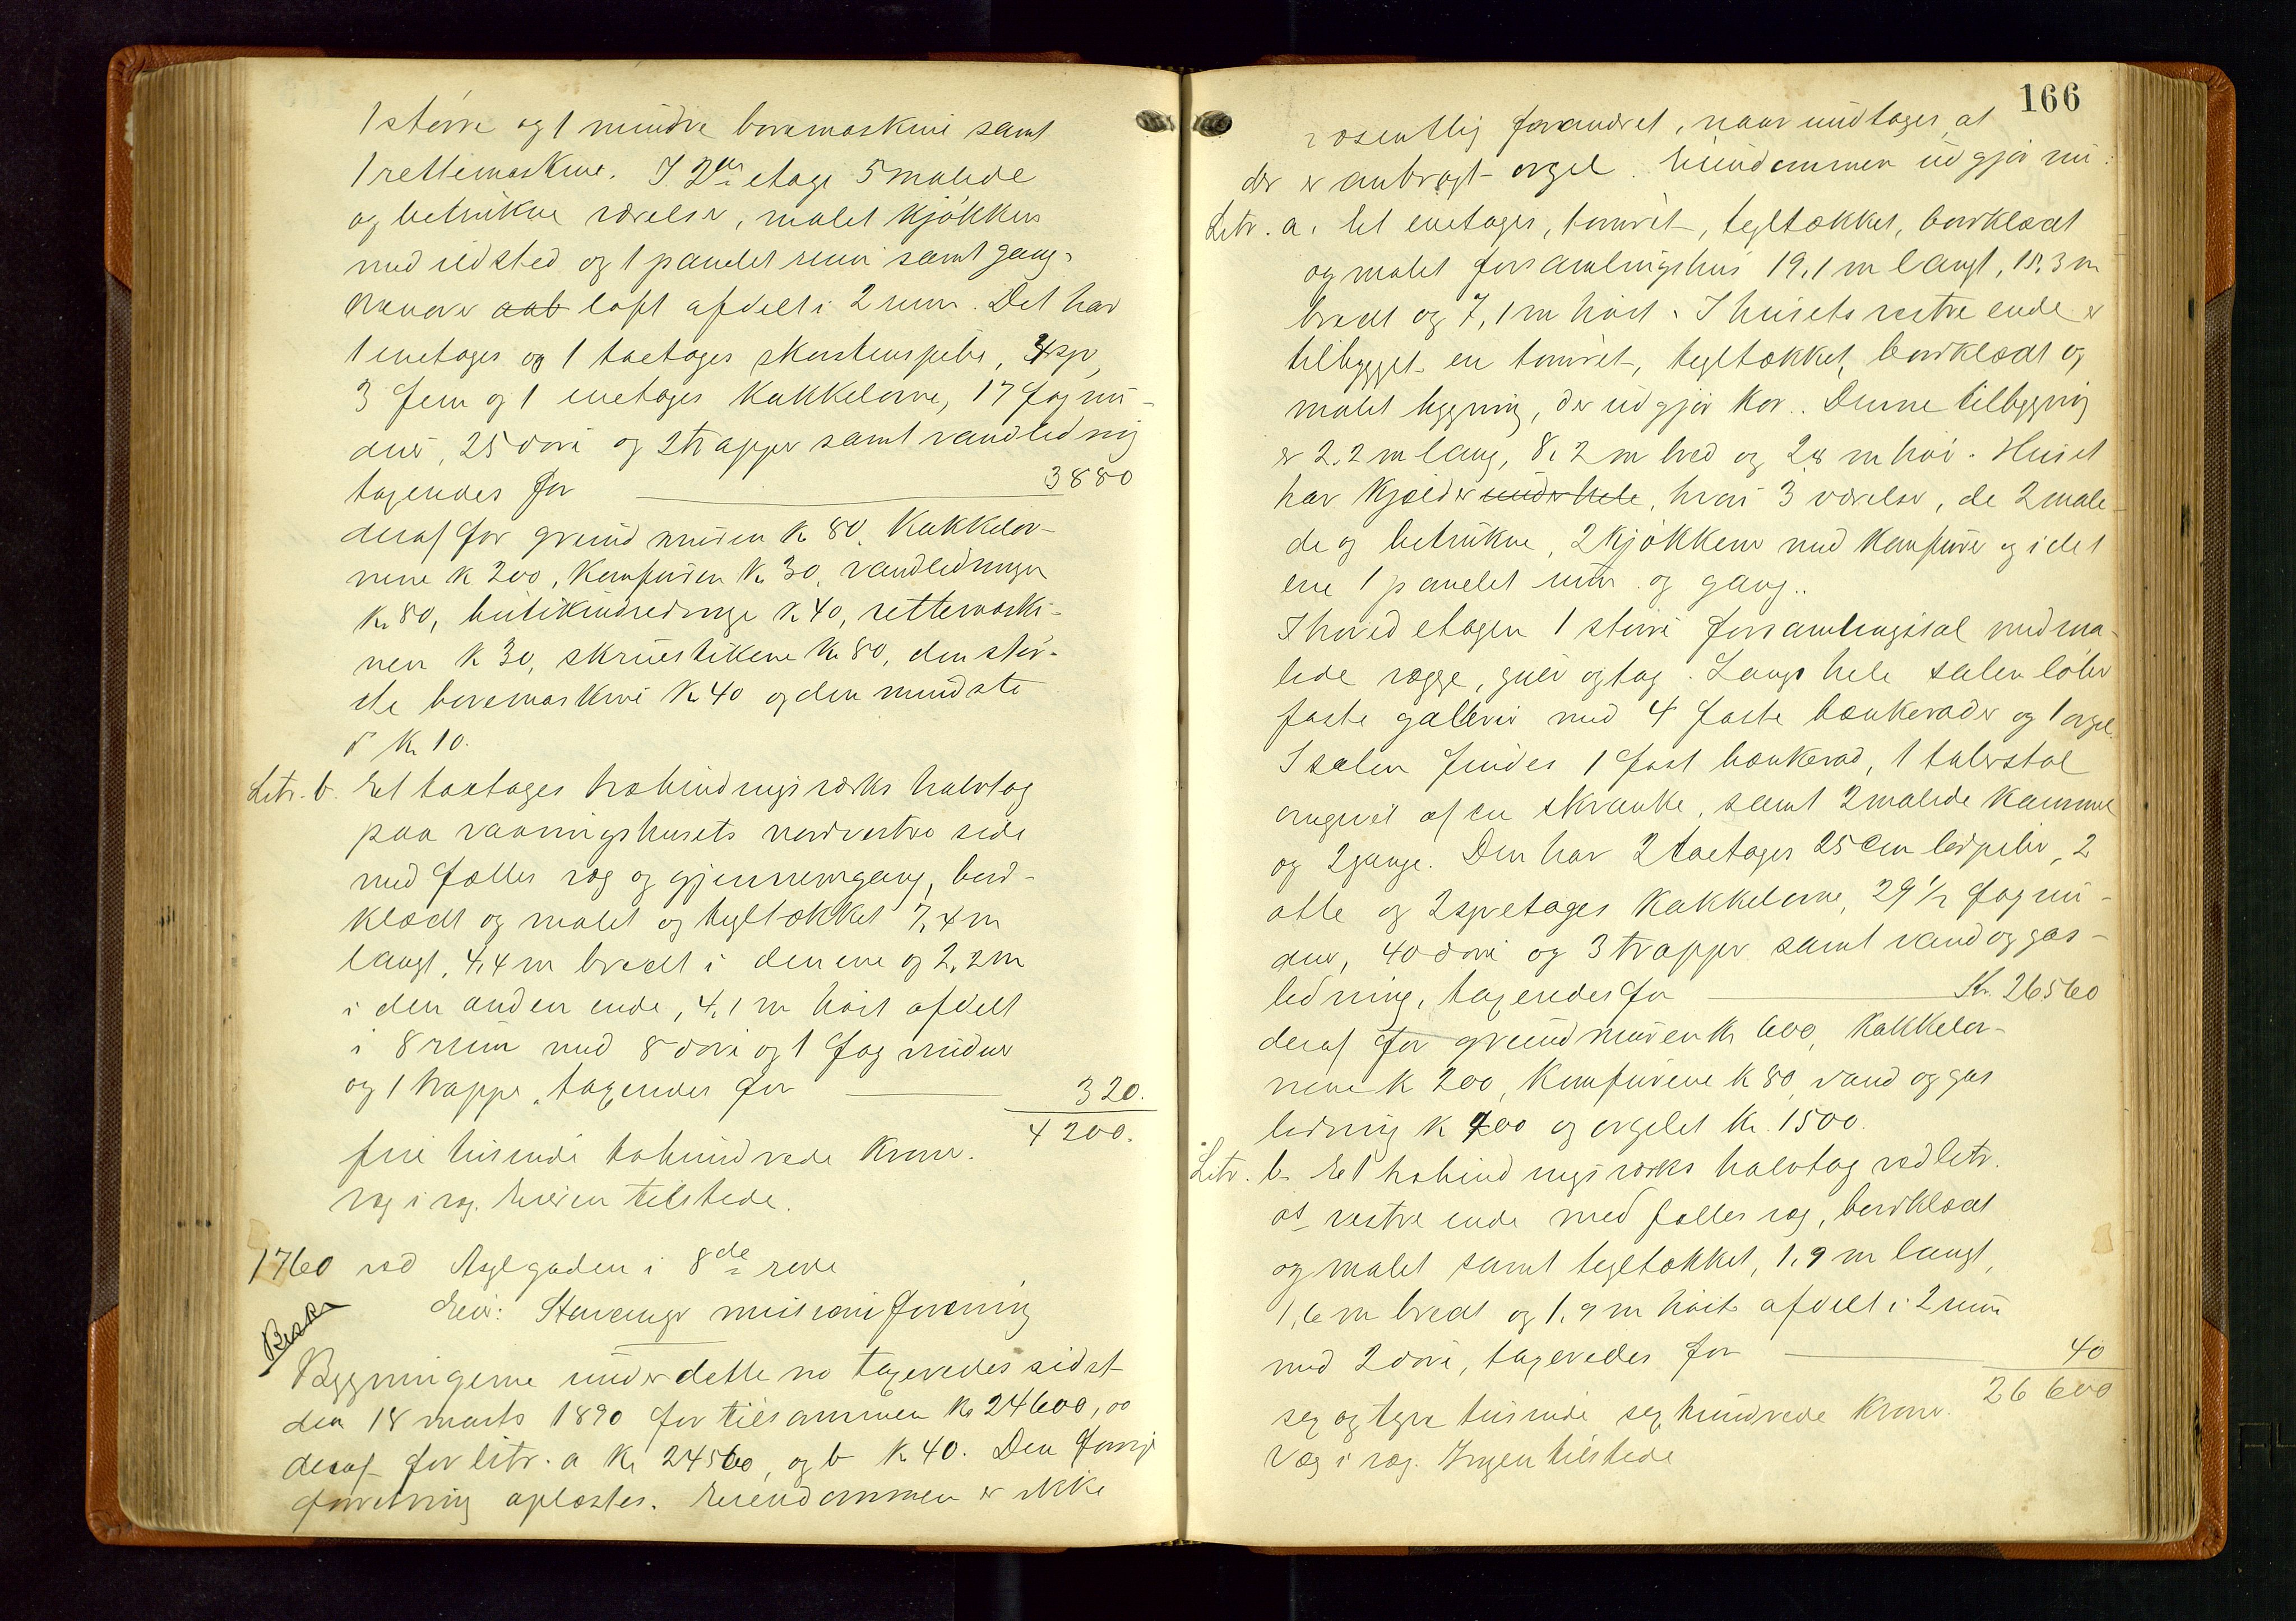 1 større og 1 mindre boremaskine samt
1 rettemaskine. I 2den etage 5 malede
og betrukne værelser, malet kjøkken
med ildsted og 1 panelet rum samt gang.
Ovenover aab loft afdelt i 2 rum. Det har
1 enetages og 1 toetages skorstenspibe,
3 fem og 1 enetages kakkelovne, 17 fag vin-
duer, 25 døre og 2 trapper samt vandledning
taxeredes for 3880
deraf for grundmuren K 80, Kakkelov-
nene K 200, Komfuren Kr 30, vandledningen
Kr. 80, butikindredninge K 40, rettemaski-
nen K 30, skruestikkene Kr 80, den stør-
ste boremaskine Kr 40 og den mindste
Kr 10.
Litr. b. Et toetages udbindingsværks halvtag
paa vaaningshusets nordvestre side
med fælles væg og gjennemgang, bord-
klædt og malet og tegltækket 7,4 m
langt, 4,4 m bredt i den ene og 2,2 m
i den anden ende, 4,1 m høit afdelt
i 8 rum med 8 døre og 1 fag vinduer
og 1 trappe, taxeredes for 320.
4200.
fire tusinde tohundrede Kroner.
væg i væg. Eieren tilstede.
1760 ved Asylgaden i 8de rode
Eier: Stavanger missionsforening
Besk.
Bygningerne under dette no taxeredes sidst
den 18 marts 1890 for tilsammen Kr 24600,00
deraf for litr. a Kr 24560, og b K 40. Den forrige
forretning oplæstes. Eiendommen er ikke
166
væsentlig forandret, naar undtages, at
der er anbragt orgel. Eiendommen udgjør nu:
Litr. a. Et enetages, tømret, tegltækket, bordklædt
og malet forsamlingshus 19,1 m langt, 15,3 m
bredt og 7,1 m høit. I husets vestre ende er
tilbygget en tømret, tegltækket, bordklædt og
malet bygning, der udgjør Kor. Denne tilbygning
er 2,2 m lang, 8,2 m bred og 2,8 m høi. Huset
har Kjælder under hele, hvori 3 værelser, de 2 male-
de og betrukne, 2 kjøkkener med Komfure og i det
ene 1 panelet rum og gang.
I hovedetagen 1 større forsamlingssal med ma-
lede vægge, gulv og tag. Langs hele salen løber
faste gallerier med 4 faste bænkerader og 1 orgel.
I salen findes 1 fast bænkerad, 1 talerstol
omgivet af en skranke, samt 2 malede kammer
og 2 gange. Den har 2 toetages 25 cm ledpiber, 2
otte og 2 syvetages Kakkelovne, 29 1/2 fag vin-
duer, 40 døre og 3 trapper samt vand og gas-
ledning, taxeredes for Kr. 26560
deraf for grundmuren Kr 600, Kakkelov-
nene K 200, Komfurene K 80, vand og gas
ledning K 700 og orgelet Kr. 1500.
Litr. b. Et udbindingsværks halvtag ved litr.
as vestre ende med fælles væg, bordklædt
og malet samt tegltækket, 1,9 m langt,
1,6 m bredt og 1,9 m høit afdelt i 2 rum
med 2 døre, taxeredes for 40
26600
sex og tyve tusinde sex hundrede Kroner.
Væg i væg. Ingen tilstede